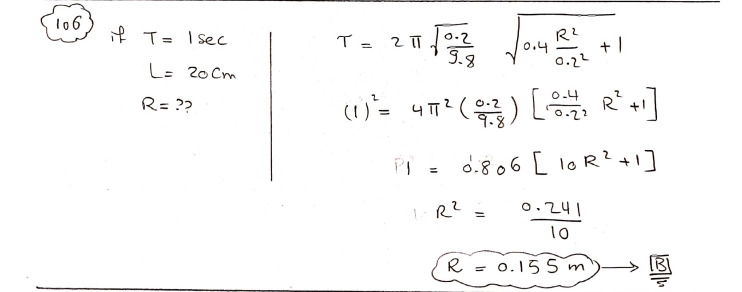 106 if T = 1 sec
L = 20 Cm
R = ??
T = 2π √(0.2/9.8) √(0.4 R²/0.2² + 1)
(1)² = 4π² (0.2/9.8) [0.4/0.2² R² + 1]
1 = 0.806 [10 R² + 1]
R² = 0.241/10
R = 0.155 m → B